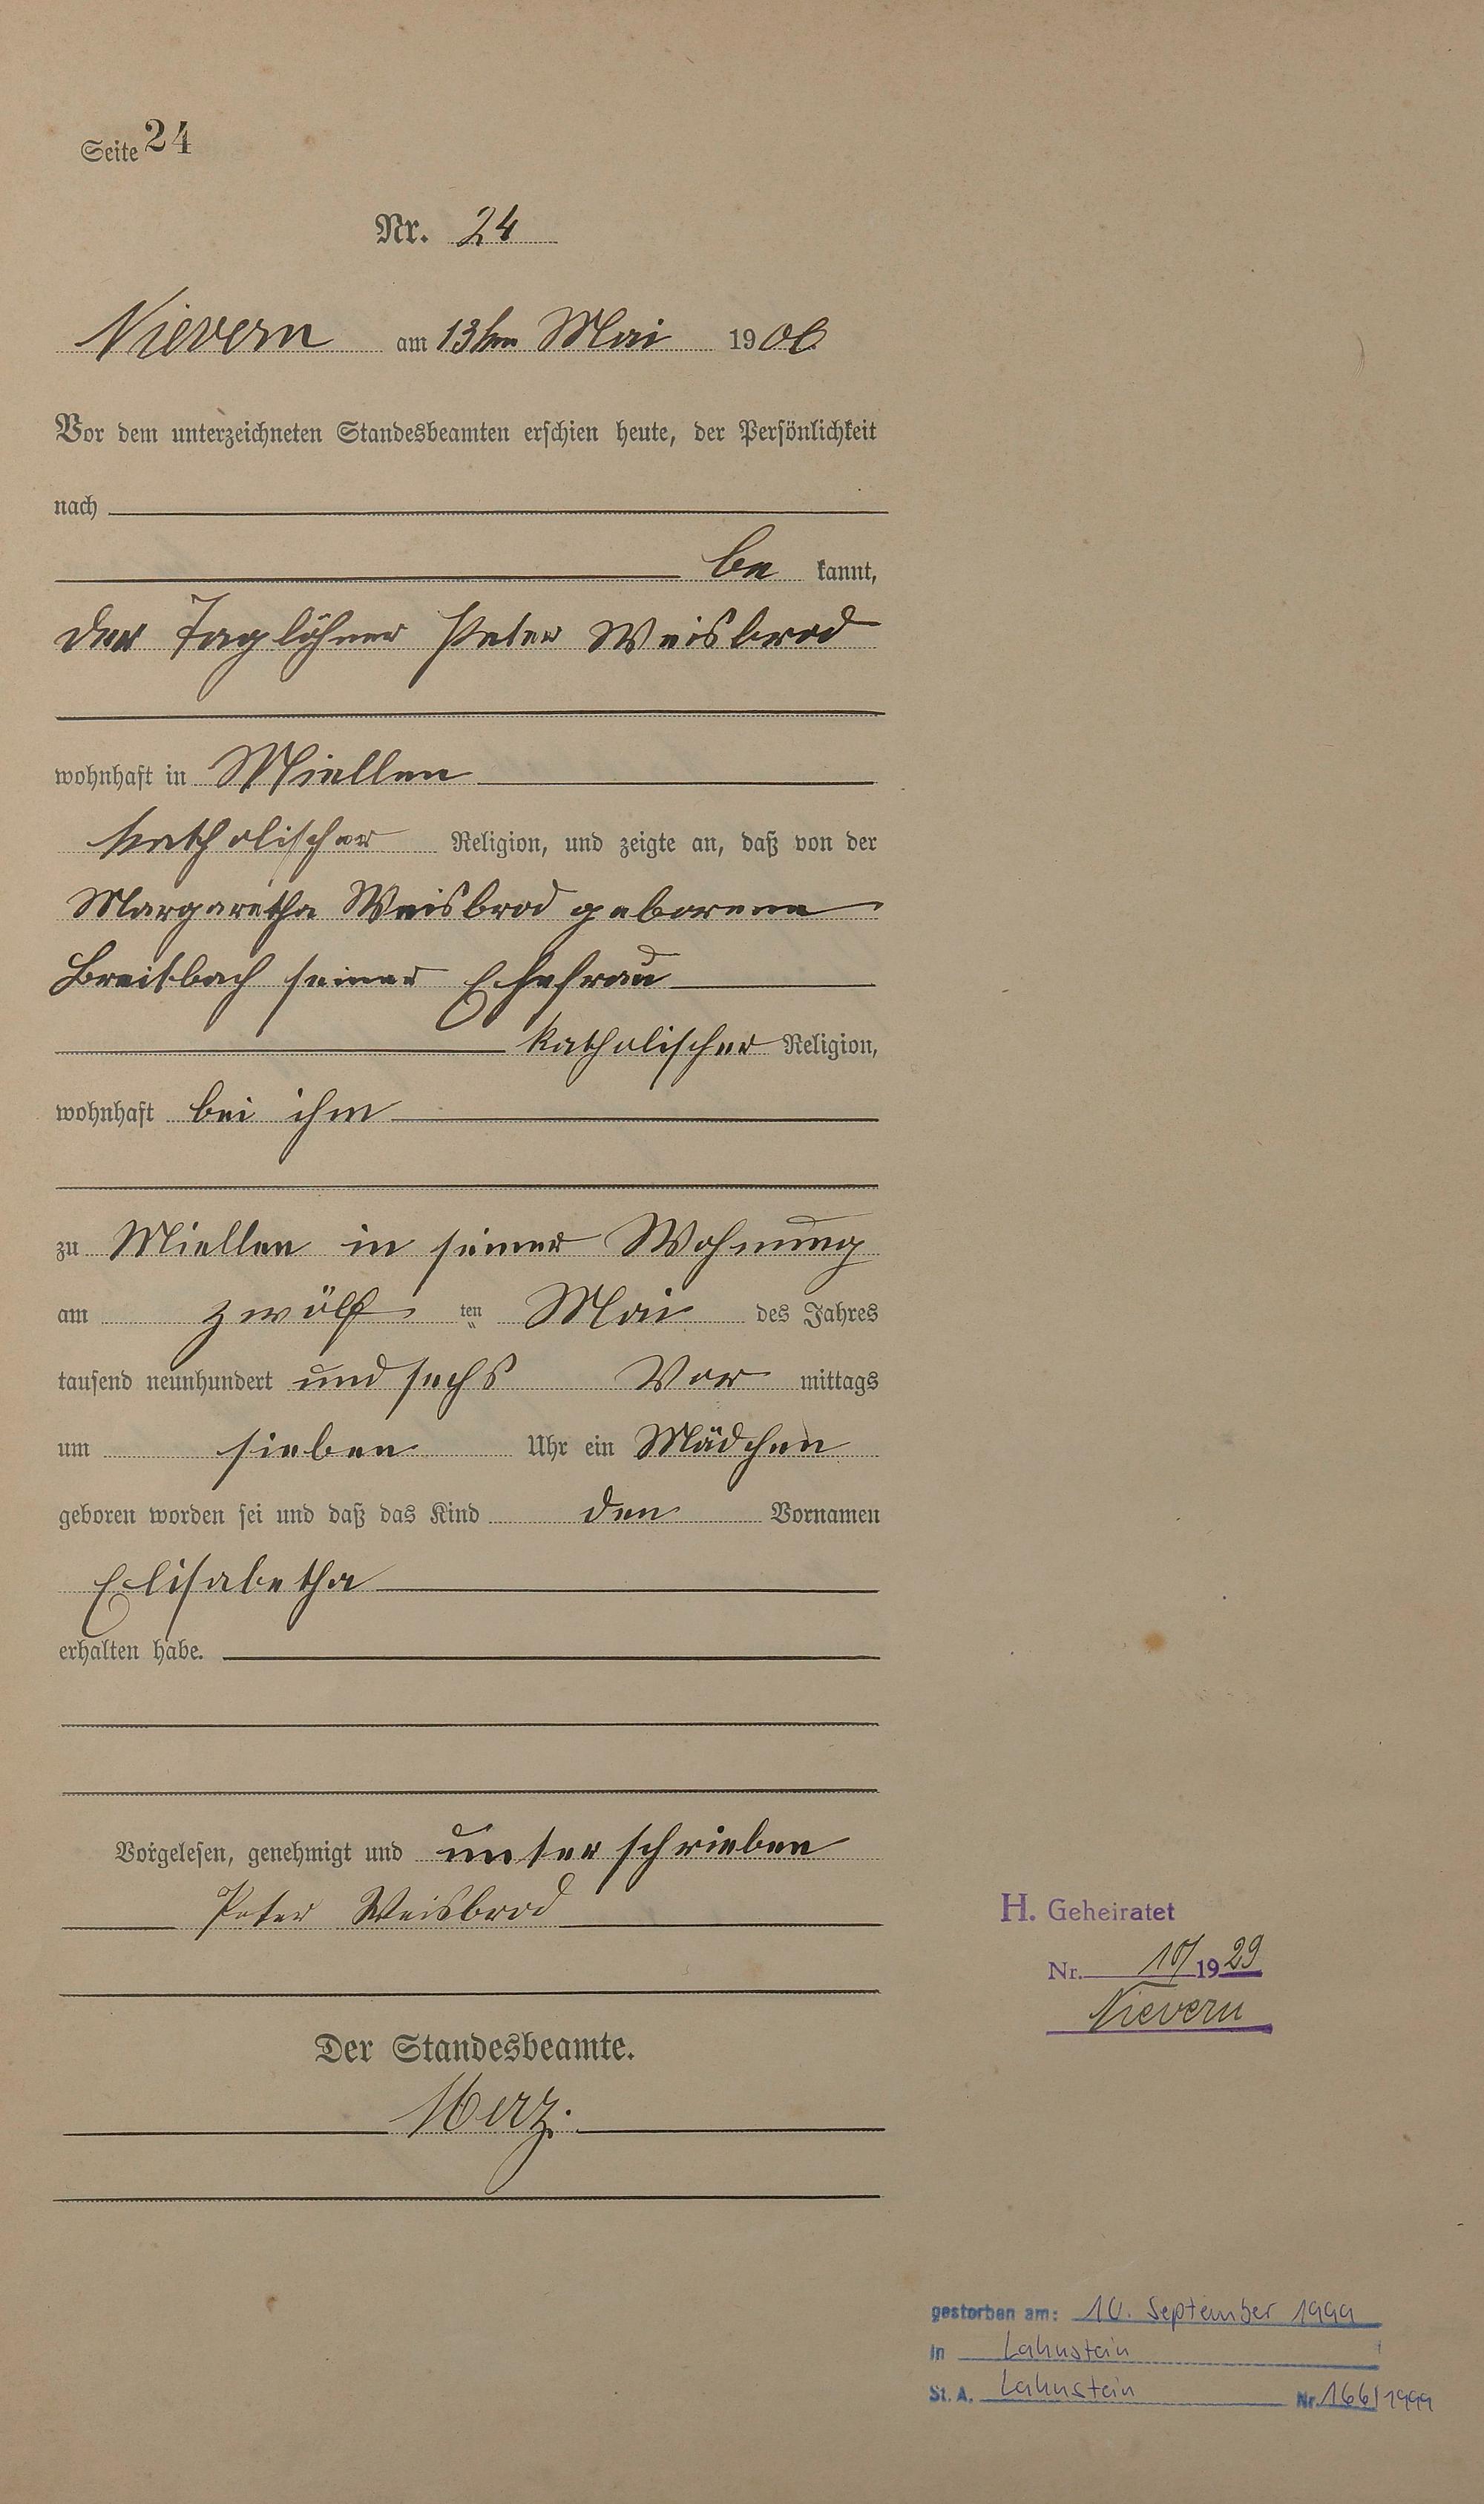 Seite 24
Nr. 24
Nievern am 13ten Mai 1906
Vor dem unterzeichneten Standesbeamten erschien heute, der Persönlichkeit
nach
be kannt,
der Taglöhner Peter Weisbrod
wohnhaft in Miellen
katholischer Religion, und zeigte an, daß von der
Margaretha Weisbrod geborene
Breitbach seiner Ehefrau
katholischer Religion,
wohnhaft bei ihm
zu Miellen in seiner Wohnung
am zwölf ten Mai des Jahres
tausend neunhundert und sechs Vor mittags
um sieben Uhr ein Mädchen
geboren worden sei und daß das Kind den Vornamen
Elisabetha
erhalten habe.
Vorgelesen, genehmigt und unterschrieben
Peter Weisbrod
Der Standesbeamte.
Merz.
H. Geheiratet
Nr. 10/1929
Nievern
gestorben am: 10. September 1999
in Lahnstein
St. A. Lahnstein Nr. 166/1999